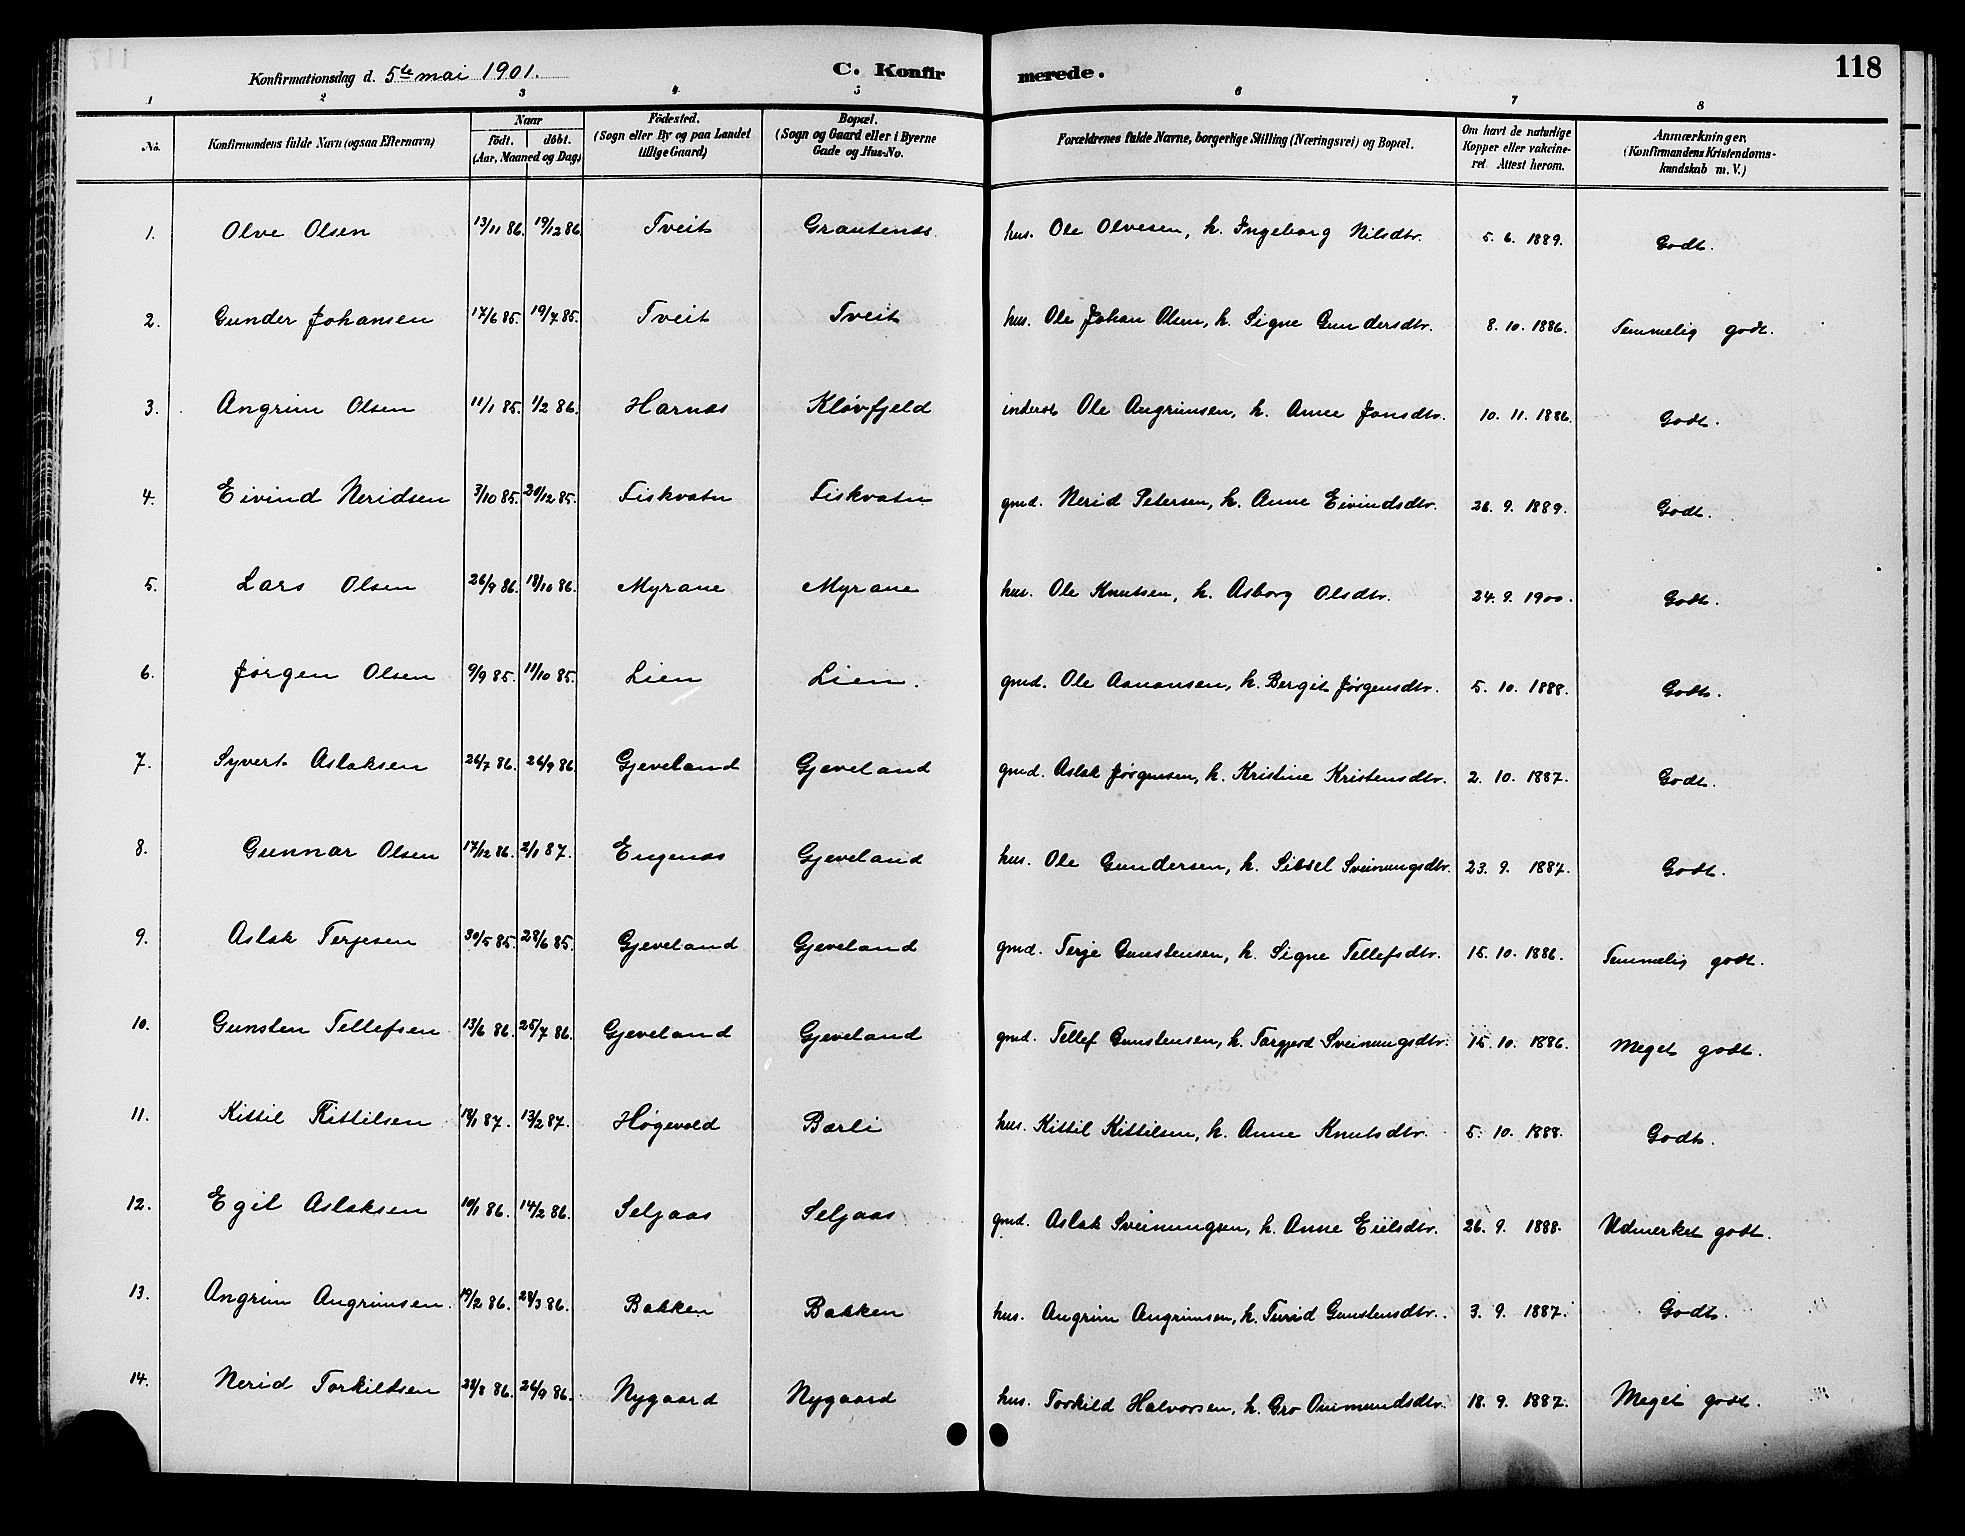 Konfirmationsdag d. 5te mai 1901. C. Konfirmerede. 118
1 2 3 4 5 6 7 8
No. Konfirmandens fulde Navn (ogsaa Efternavn) Naar födt. döbt. (Aar, Maaned og Dag) Födested. (Sogn eller By og paa Landet tillige Gaard) Bopæl. (Sogn og Gaard eller i Byerne Gade og Hus-No. Forældrenes fulde Navne, borgerlige Stilling (Næringsvei) og Bopæl. Om havt de naturlige Kopper eller vakcineret. Attest herom. Anmærkninger, (Konfirmandens Kristendomskundskab m. V.)
1. Olve Olsen 13/11 86. 19/12 86. Tveit Grautenes hus. Ole Olvesen, h. Ingeborg Nilsdtr. 5. 6. 1889. Godt.
2. Gunder Johansen 17/6 85. 19/7 85. Tveit Tveit hus. Ole Johan Olsen, h. Signe Gundersdtr. 8. 10. 1886. Temmelig godt.
3. Angrim Olsen 11/1 85. 1/2 86. Harnes Kløvfjeld inderst Ole Angrimsen, h. Anne Jonsdtr. 10. 11. 1886. Godt.
4. Eivind Neridsen 3/10 85. 20/12 85. Fiskvatn Fiskvatn gmd. Nerid Petersen, h. Anne Eivindsdtr. 26. 9. 1889. Godt.
5. Lars Olsen 26/9 86. 18/10 86. Myrane Myrane hus. Ole Knutsen, h. Asborg Olsdtr. 24. 9. 1900. Godt.
6. Jørgen Olsen 9/9 85. 11/10 85. Lien Lien. gmd. Ole Aanonsen, h. Bergit Jørgensdtr. 5. 10. 1888. Godt.
7. Syvert Aslaksen 26/7 86. 26/9 86 Gjeveland Gjeveland gmd. Aslak Jørgensen, h. Kristine Kristensdtr. 2. 10. 1887. Godt.
8. Gunnar Olsen 17/12 86. 2/1 87. Engenes Gjeveland hus. Ole Gundersen, h. Sissel Sveinungsdtr. 23. 9. 1887. Godt.
9. Aslak Terjesen 30/5 85. 28/6 85. Gjeveland Gjeveland gmd. Terje Gunstensen, h. Signe Tellefsdtr. 15. 10. 1886. Temmelig godt.
10. Gunsten Tellefsen 13/6 86. 25/7 86. Gjeveland Gjeveland gmd. Tellef Gunstensen, h. Targjerd Sveinungsdtr. 15. 10. 1886. Meget godt.
11. Kittil Kittilsen 18/1 87. 13/2 87. Høgevold Bærli hus. Kittil Kittilsen, h. Anne Knutsdtr. 5. 10. 1888. Godt.
12. Egil Aslaksen 10/1 86. 14/2 86. Seljaas Seljaas gmd. Aslak Sveinungsen, h. Anne Eielsdtr. 26. 9. 1888. Udmerket godt.
13. Angrim Angrimsen. 19/2 86. 28/3 86. Bakken Bakken hus. Angrim Angrimsen, h. Turid Gunstensdtr. 3. 9. 1887. Godt.
14. Nerid Torkildsen 28/8 86. 26/9 86. Nygaard Nygaard hus. Torkild Halvorsen, h. Gro Oumundsdtr. 18. 9. 1887. Meget godt.